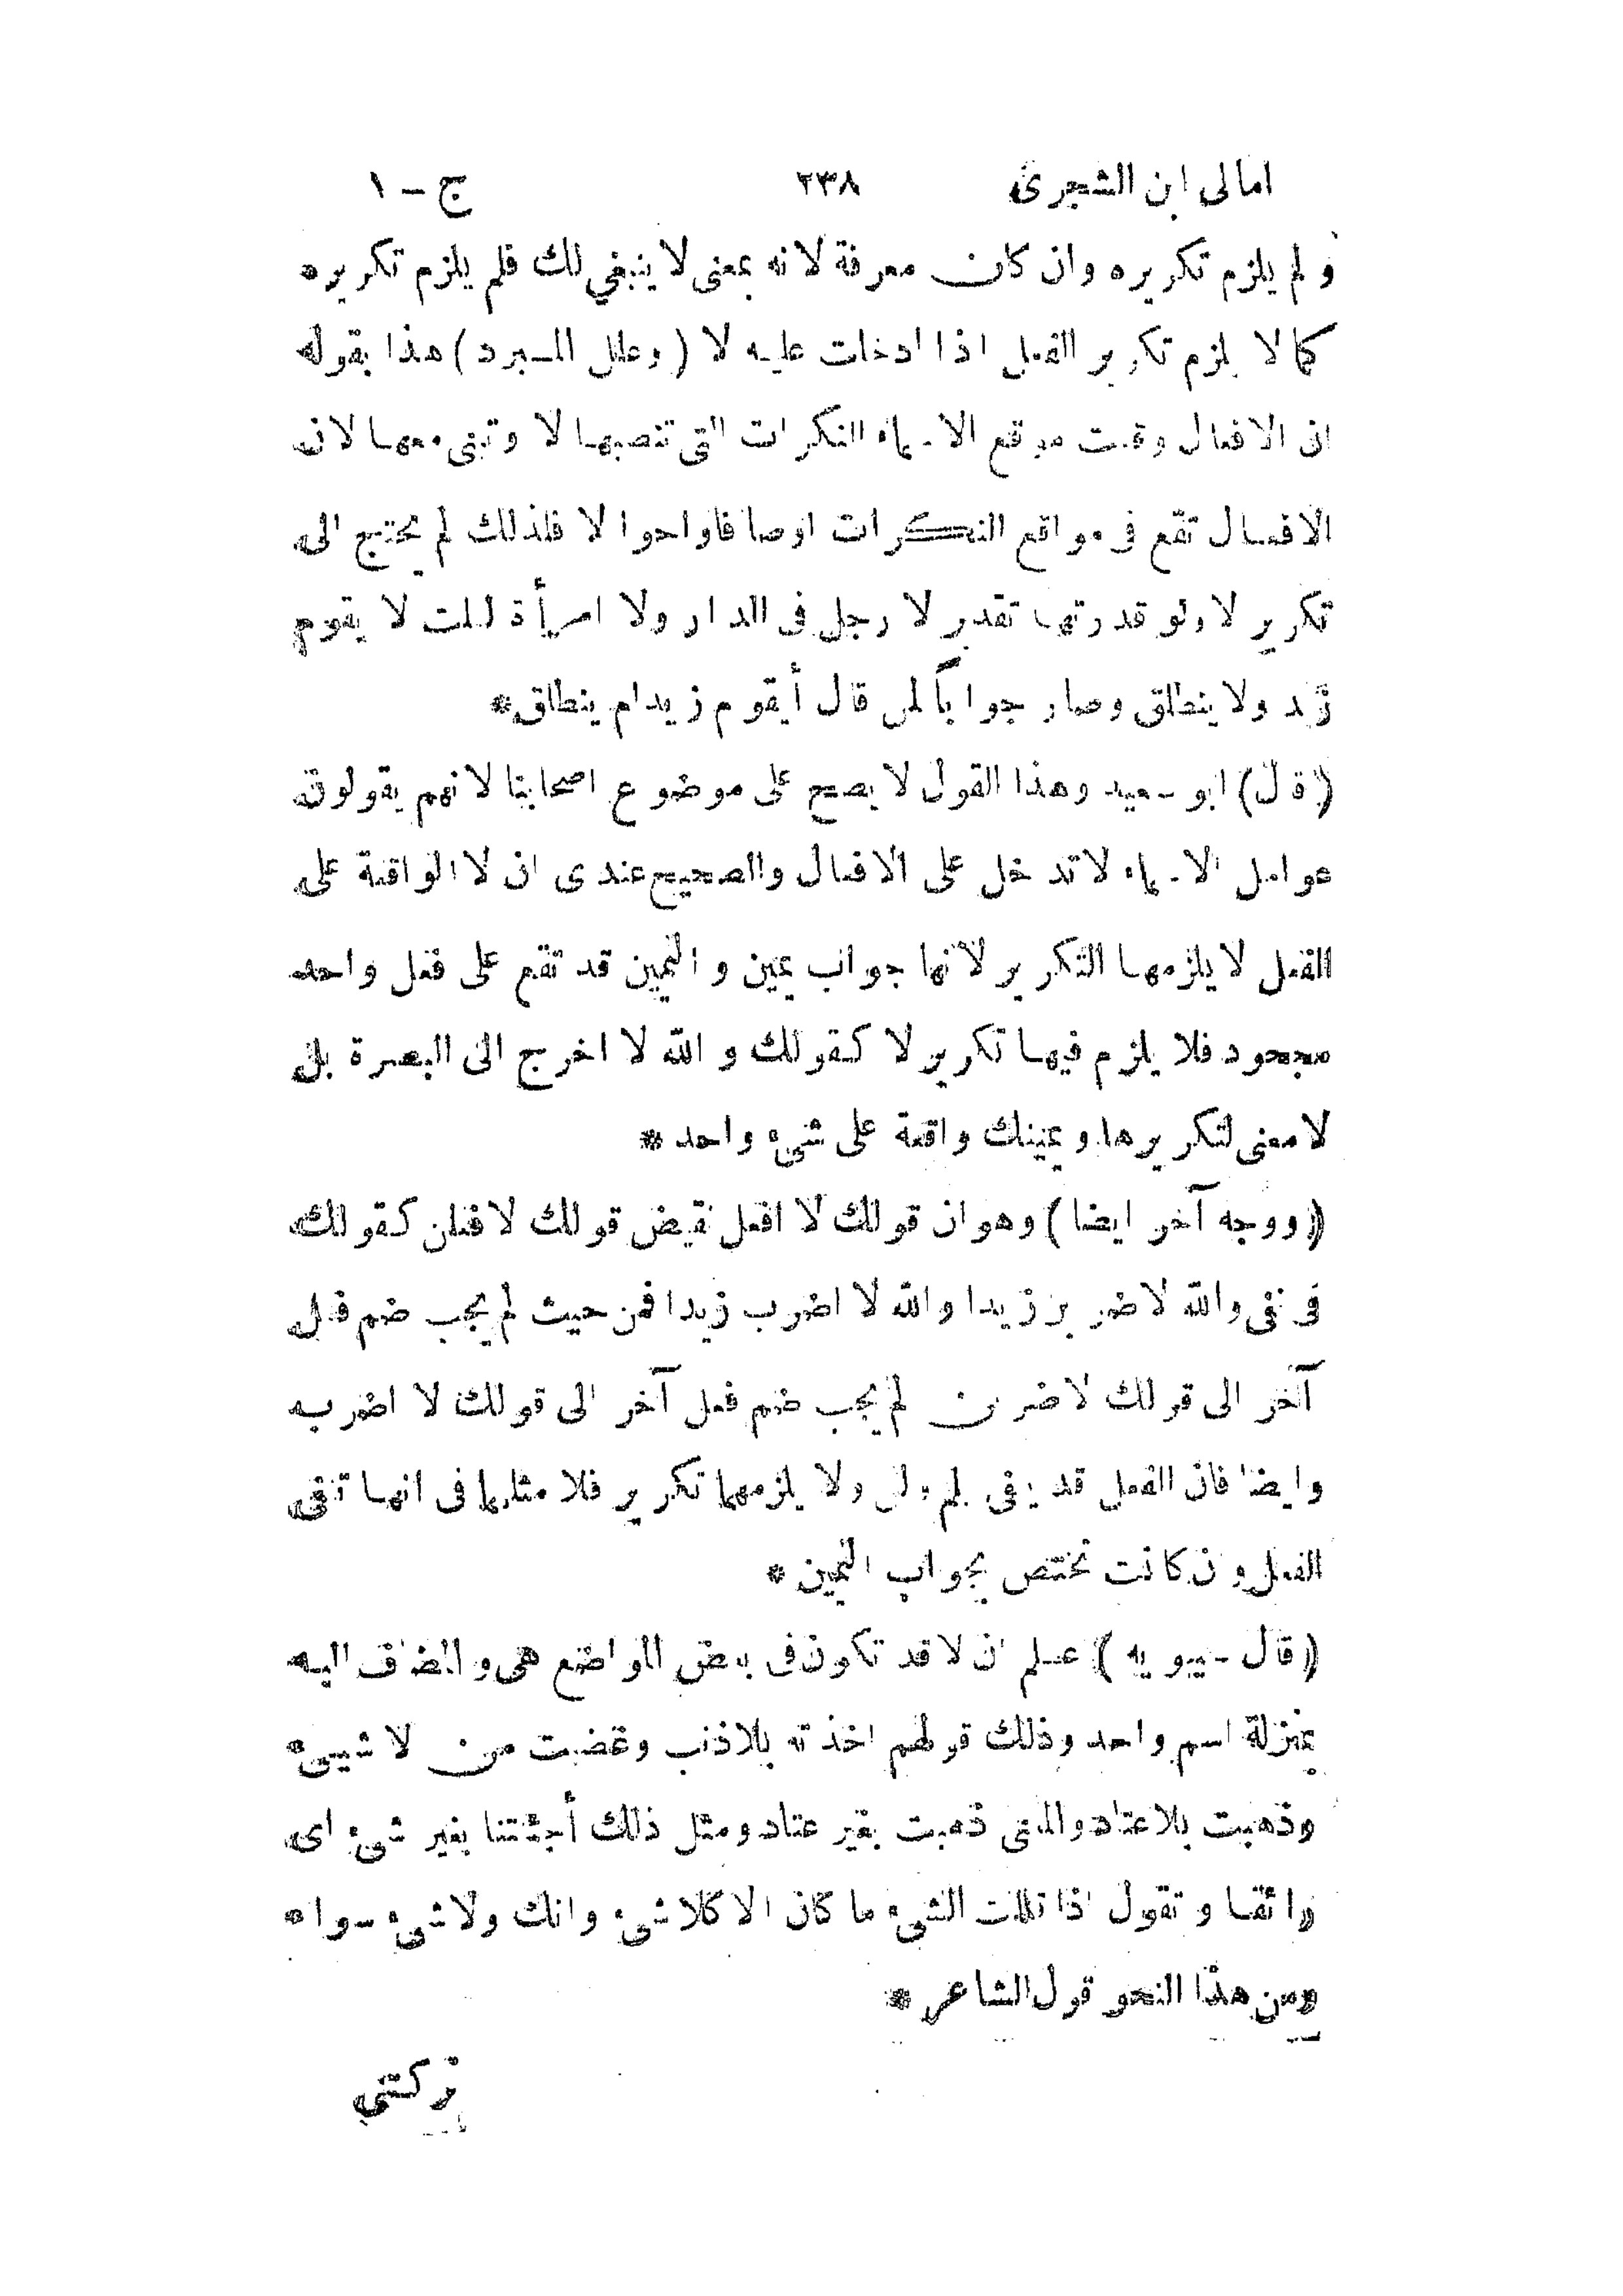 امالى ابن الشجرى ٢٣٨ ج - ١
ولم يلزم تكريره وان كان معرفة لانه بمعنى لا ينبغي لك فلم يلزم تكريره
كما لا يلزم تكرير الفعل اذا ادخلت عليه لا (وعلل المبرد) هذا بقوله
ان الافعال وقعت موقع الاسماء النكرات التى تنصبها لا وتبنى معها لان
الافعال تقع فى مواقع النكرات اوصافا واحوا لا فلذلك لم يحتج الى
تكرير لا ولو قدرتها تقدير لا رجل فى الدار ولا امرأة لقلت لا يقوم
زيد ولا ينطلق وصار جوابا لمن قال أيقوم زيد ام ينطلق*
(قال) ابو سعيد وهذا القول لا يصح على موضوع اصحابنا لانهم يقولون
عوامل الاسماء لا تدخل على الافعال والصحيح عندى ان لا الواقعة على
الفعل لا يلزمها التكرير لانها جواب يمين واليمين قد تقع على فعل واحد
مجحود فلا يلزم فيها تكرير لا كقولك والله لا اخرج الى البصرة بل
لا معنى لتكريرها ويمينك واقعة على شىء واحد *
(ووجه آخر ايضا) وهو ان قولك لا افعل نقيض قولك لافعلن كقولك
فى نفى والله لاضربن زيدا والله لا اضرب زيدا فمن حيث لم يجب ضم فعل
آخر الى قولك لاضربن لم يجب ضم فعل آخر الى قولك لا اضرب
وايضا فان الفعل قد ينفى بلم ولن ولا يلزمهما تكرير فلا مثلهما فى انها تنفى
الفعل وان كانت تختص بجواب اليمين *
(قال سيبويه) اعلم ان لا قد تكون فى بعض المواضع هى والمضاف اليه
بمنزلة اسم واحد وذلك قولهم اخذته بلا ذنب وغضبت من لا شيىء
وذهبت بلا عتاد والمعنى ذهبت بغير عتاد ومثل ذلك أجئتنا بغير شىء اى
رائقا وتقول اذا قللت الشىء ما كان الا كلا شىء وانك ولا شىء سواء
ومن هذا النحو قول الشاعر *
تركتنى